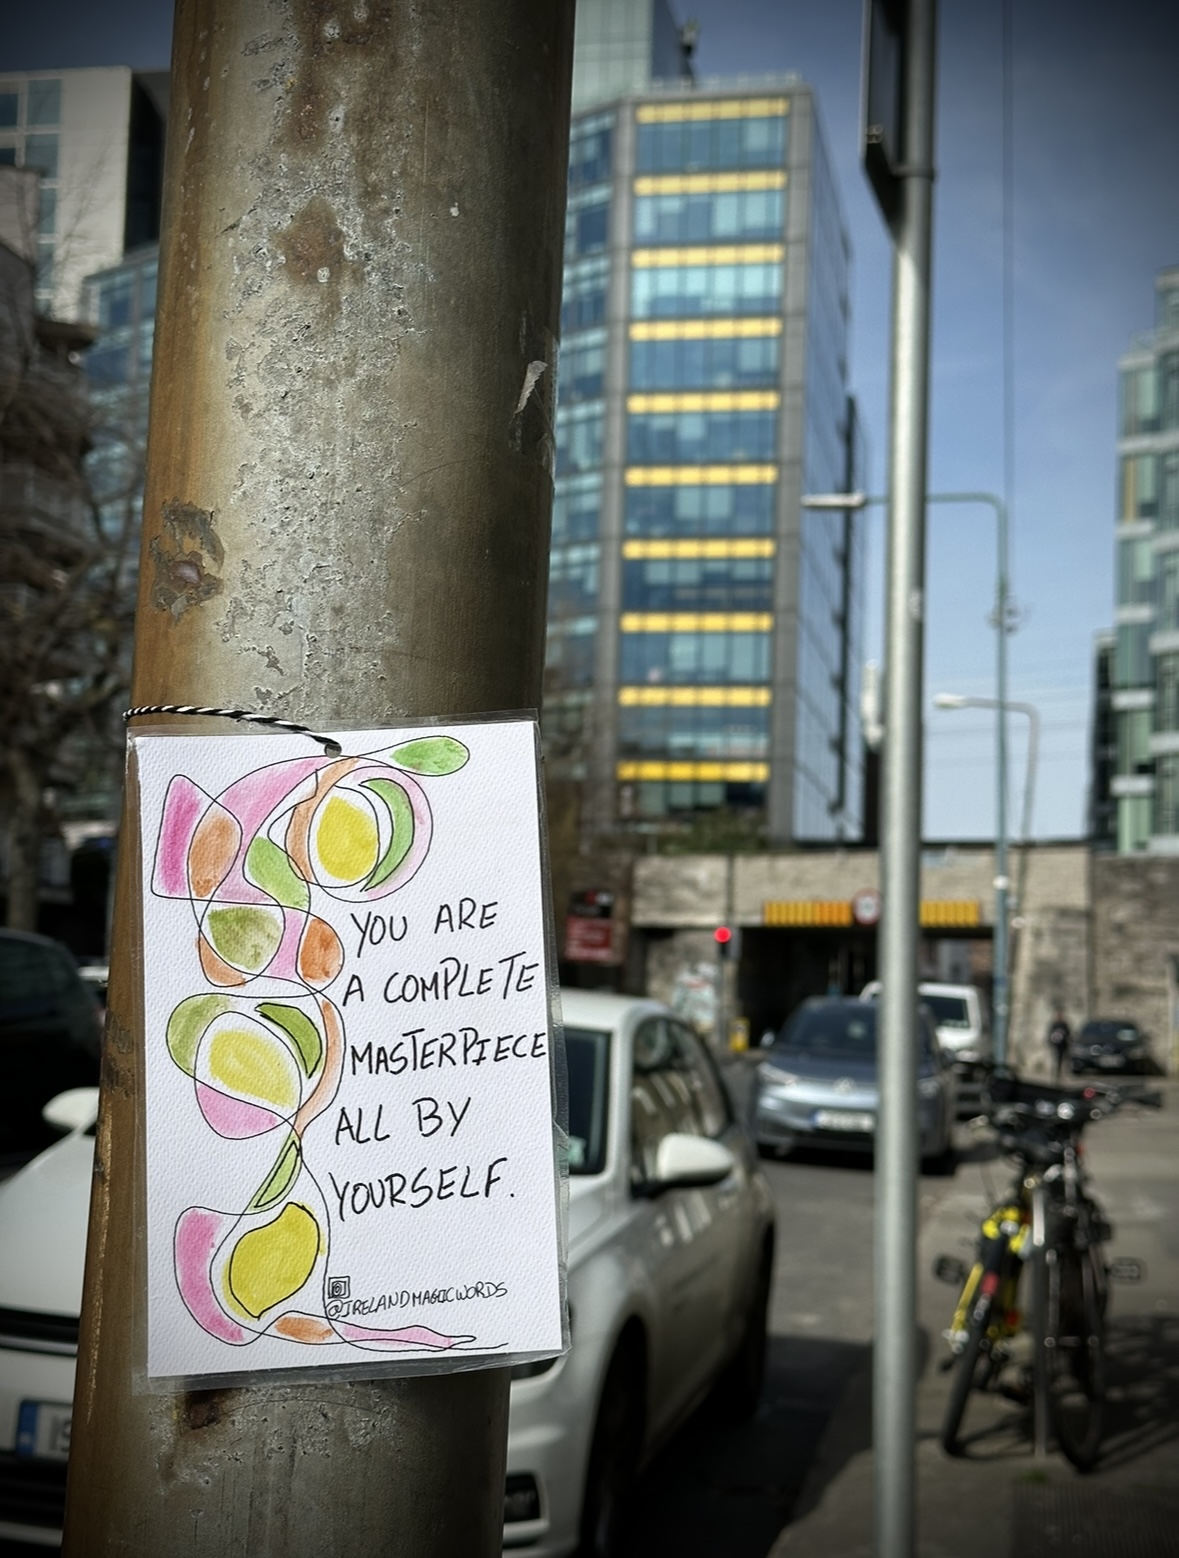 YOU ARE
A COMPLETE
MASTERPIECE
ALL BY
YOURSELF.
@IRELANDMAGICWORDS